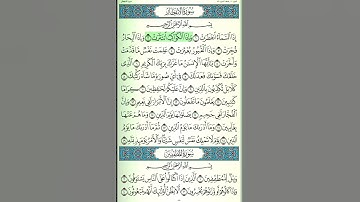 سُورَةُ الانفِطَارِ
بِسْمِ ٱللَّهِ ٱلرَّحْمَٰنِ ٱلرَّحِيمِ
إِذَا ٱلسَّمَآءُ ٱنفَطَرَتْ ١ وَإِذَا ٱلْكَوَاكِبُ ٱنتَثَرَتْ ٢ وَإِذَا ٱلْبِحَارُ
فُجِّرَتْ ٣ وَإِذَا ٱلْقُبُورُ بُعْثِرَتْ ٤ عَلِمَتْ نَفْسٌ مَّا قَدَّمَتْ
وَأَخَّرَتْ ٥ يَٰٓأَيُّهَا ٱلْإِنسَٰنُ مَا غَرَّكَ بِرَبِّكَ ٱلْكَرِيمِ ٦ ٱلَّذِى
خَلَقَكَ فَسَوَّىٰكَ فَعَدَلَكَ ٧ فِىٓ أَىِّ صُورَةٍ مَّا شَآءَ رَكَّبَكَ ٨
كَلَّا بَلْ تُكَذِّبُونَ بِٱلدِّينِ ٩ وَإِنَّ عَلَيْكُمْ لَحَٰفِظِينَ ١٠ كِرَامًا
كَٰتِبِينَ ١١ يَعْلَمُونَ مَا تَفْعَلُونَ ١٢ إِنَّ ٱلْأَبْرَارَ لَفِى نَعِيمٍ ١٣ وَإِنَّ
ٱلْفُجَّارَ لَفِى جَحِيمٍ ١٤ يَصْلَوْنَهَا يَوْمَ ٱلدِّينِ ١٥ وَمَا هُمْ عَنْهَا
بِغَآئِبِينَ ١٦ وَمَآ أَدْرَىٰكَ مَا يَوْمُ ٱلدِّينِ ١٧ ثُمَّ مَآ أَدْرَىٰكَ مَا
يَوْمُ ٱلدِّينِ ١٨ يَوْمَ لَا تَمْلِكُ نَفْسٌ لِّنَفْسٍ شَيْـًٔا وَٱلْأَمْرُ يَوْمَئِذٍ لِّلَّهِ ١٩
سُورَةُ المُطَفِّفِينَ
بِسْمِ ٱللَّهِ ٱلرَّحْمَٰنِ ٱلرَّحِيمِ
وَيْلٌ لِّلْمُطَفِّفِينَ ١ ٱلَّذِينَ إِذَا ٱكْتَالُوا۟ عَلَى ٱلنَّاسِ يَسْتَوْفُونَ ٢
وَإِذَا كَالُوهُمْ أَو وَّزَنُوهُمْ يُخْسِرُونَ ٣ أَلَا يَظُنُّ أُو۟لَٰٓئِكَ أَنَّهُم مَّبْعُوثُونَ ٤